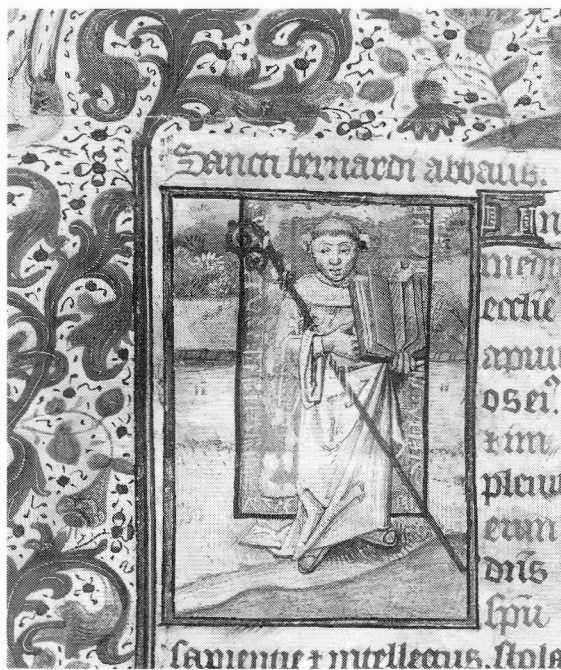 Sancti bernardi abbatis.
In
medio
ecclie
apuit
os ei⁹.
⁊ im
pleuit
eum
dñs
spu
sapientie ⁊ intellectus. stola